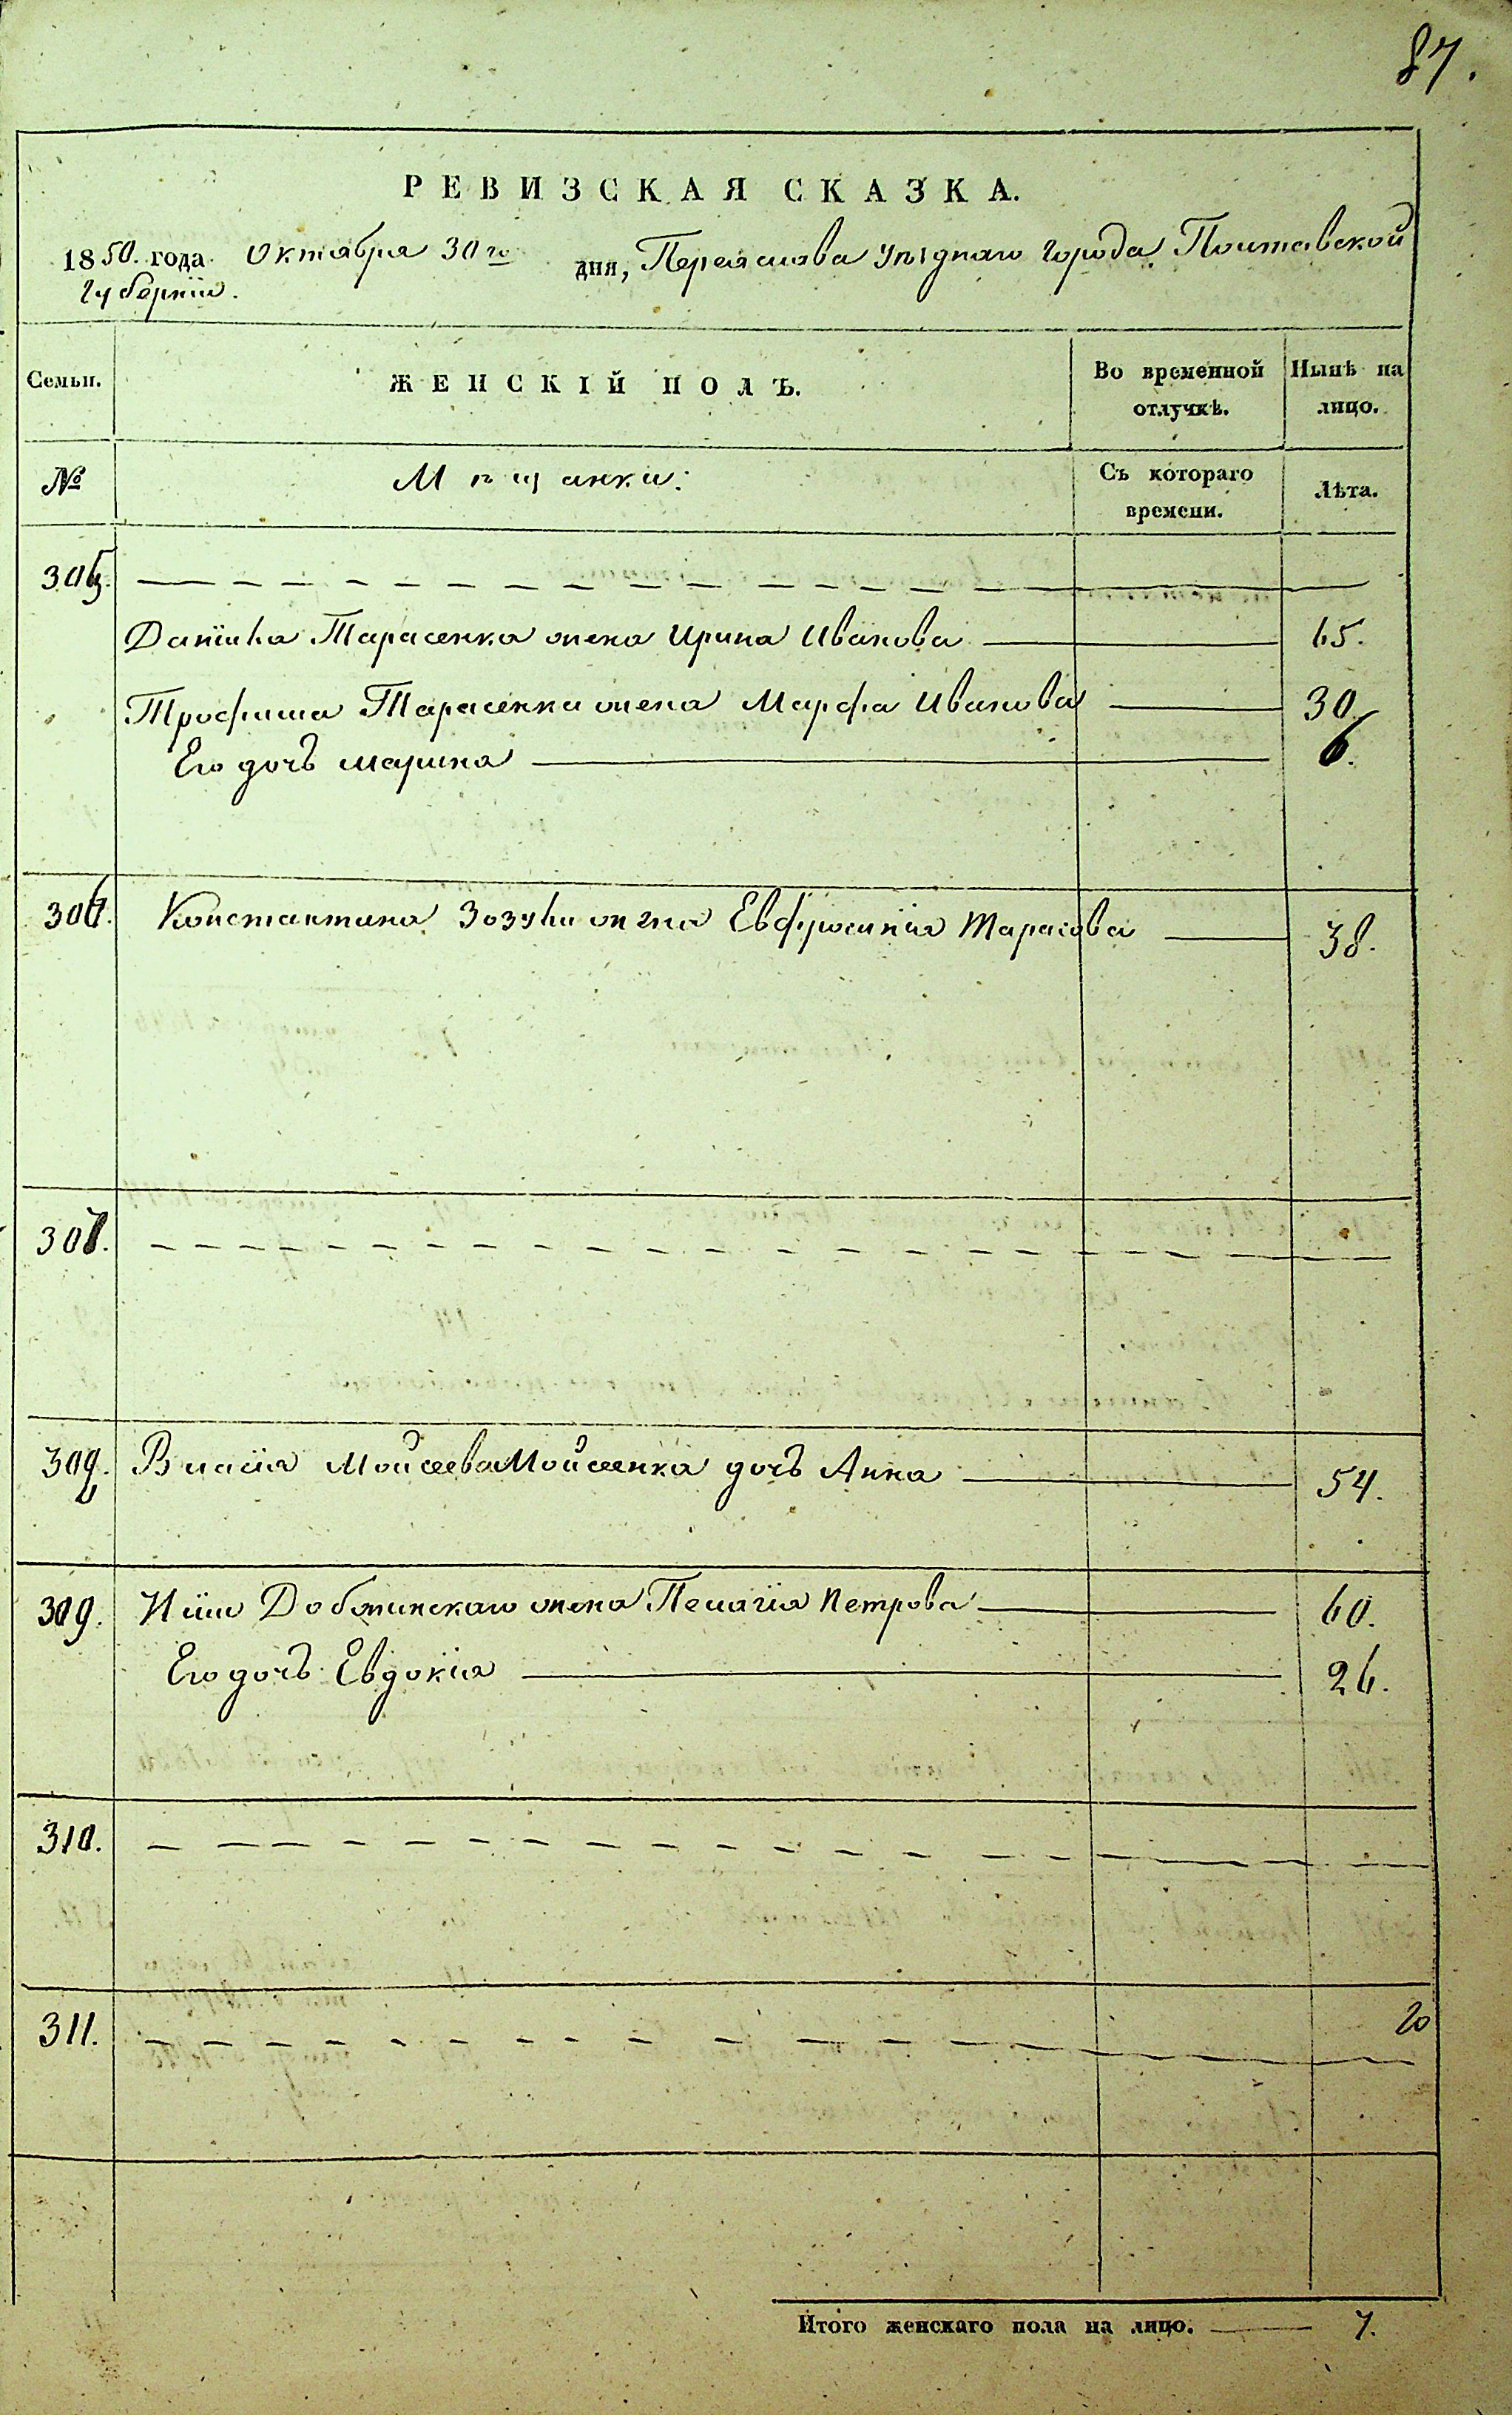 87.
РЕВИЗСКАЯ СКАЗКА.
1850. года Октября 30го дня, Переяслова Уѣзднаго города Полтавской
Губерніи.
Семьи. ЖЕНСКІЙ ПОЛЪ. Во временной отлучкѣ. Нынѣ на лицо.
№ Мѣщанки: Съ котораго времени. Лѣта.
305.
Даніила Тарасенка жена Ирина Иванова 65.
Трофима Тарасенка жена Марфа Иванова 30.
Его дочь Марина 6.
306. Константина Зозули жена Евфросинія Тарасова 38.
307.
308. Власія Мойсеева Мойсенка дочь Анна 54.
309. Иліи Добжинскаго жена Пелагія Петрова 60.
Его дочь Евдокія 26.
310.
311.
Итого женскаго пола на лицо. 7.